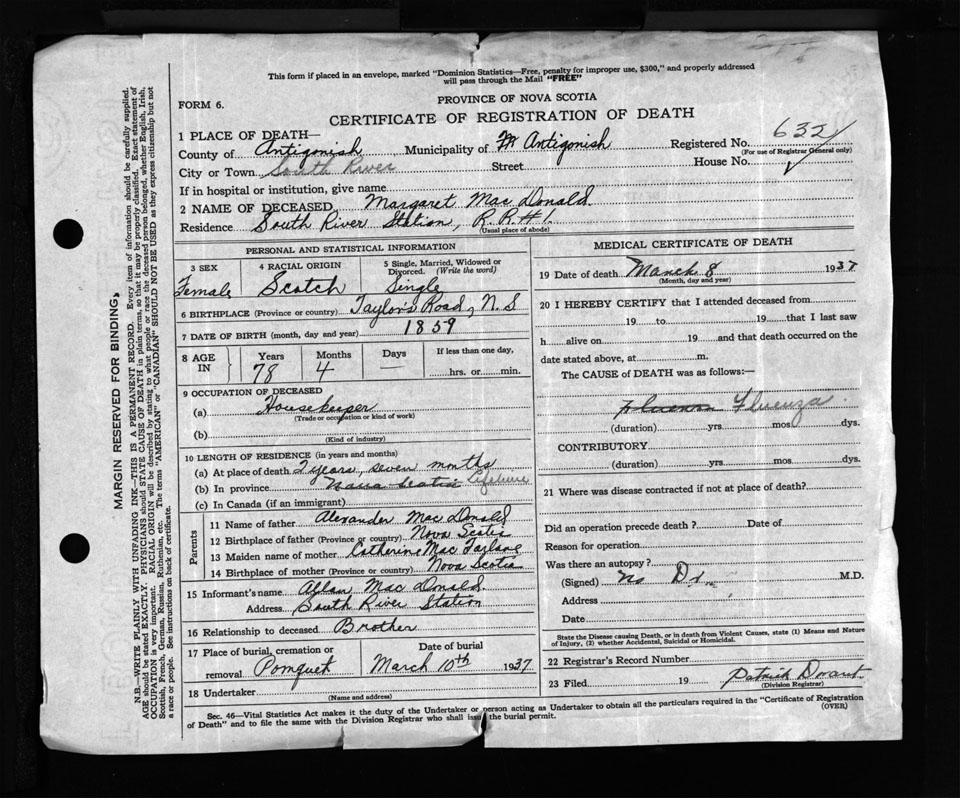 This form if placed in an envelope, marked "Dominion Statistics—Free, penalty for improper use, $300," and properly addressed
will pass through the Mail "FREE"
FORM 6.
PROVINCE OF NOVA SCOTIA
CERTIFICATE OF REGISTRATION OF DEATH
1 PLACE OF DEATH—
County of Antigonish Municipality of Antigonish Registered No. 632
(For use of Registrar General only)
City or Town South River Street House No.
If in hospital or institution, give name
2 NAME OF DECEASED Margaret Mac Donald
Residence South River Station, R.R.#1.
(Usual place of abode)
PERSONAL AND STATISTICAL INFORMATION
3 SEX 4 RACIAL ORIGIN 5 Single, Married, Widowed or
Divorced. (Write the word)
Female Scotch Single
6 BIRTHPLACE (Province or country) Taylor's Road, N.S
7 DATE OF BIRTH (month, day and year) 1859
8 AGE IN Years Months Days If less than one day,
78 4 — hrs. or min.
9 OCCUPATION OF DECEASED
(a) Housekeeper
(Trade or occupation or kind of work)
(b)
(Kind of industry)
10 LENGTH OF RESIDENCE (in years and months)
(a) At place of death 2 years, seven months
(b) In province Nova Scotia Lifetime
(c) In Canada (if an immigrant)
Parents
11 Name of father Alexander Mac Donald
12 Birthplace of father (Province or country) Nova Scotia
13 Maiden name of mother Catherine Mac Farlane
14 Birthplace of mother (Province or country) Nova Scotia
15 Informant's name Allan Mac Donald
Address South River Station
16 Relationship to deceased Brother
17 Place of burial, cremation or Date of burial
removal Pomquet March 10th 1937
18 Undertaker
(Name and address)
MEDICAL CERTIFICATE OF DEATH
19 Date of death March 8 1937
(Month, day and year)
20 I HEREBY CERTIFY that I attended deceased from
19 to 19 that I last saw
h alive on 19 and that death occurred on the
date stated above, at m.
The CAUSE of DEATH was as follows:—
Fluenza
(duration) yrs mos dys.
CONTRIBUTORY
(duration) yrs. mos. dys.
21 Where was disease contracted if not at place of death?
Did an operation precede death ? Date of
Reason for operation
Was there an autopsy?
(Signed) No Dr. M.D.
Address
Date
State the Disease causing Death, or in death from Violent Causes, state (1) Means and Nature
of Injury, (2) whether Accidental, Suicidal or Homicidal.
22 Registrar's Record Number
23 Filed 19 Patrick
(Division Registrar)
Sec. 46—Vital Statistics Act makes it the duty of the Undertaker or person acting as Undertaker to obtain all the particulars required in the "Certificate of Registration
of Death" and to file the same with the Division Registrar who shall issue the burial permit. (OVER)
MARGIN RESERVED FOR BINDING,
N.B.—WRITE PLAINLY WITH UNFADING INK—THIS IS A PERMANENT RECORD. Every item of information should be carefully supplied.
AGE should be stated EXACTLY. PHYSICIANS should STATE CAUSE OF DEATH in plain terms, so that it may be properly classified. Exact statement of
OCCUPATION is very important. RACIAL ORIGIN will be described by stating to what people or race the deceased person belonged, whether English, Irish,
Scottish, French, German, Russian, Ruthenian, etc. The terms "AMERICAN" or "CANADIAN" SHOULD NOT BE USED as they express citizenship but not
a race or people. See instructions on back of certificate.